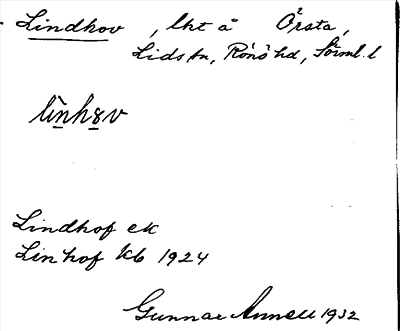 Lindhov, lht å Örsta,
Lids sn, Rönö hd, Sörml. l
lìnhȣv
Lindhof ek
Linhof kb 1924
Gunnar Annell 1932